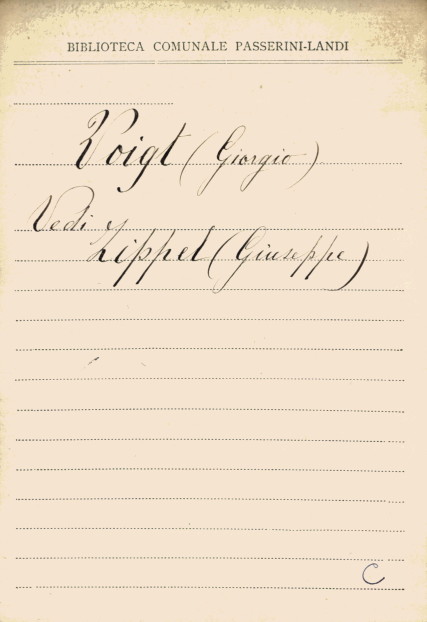 BIBLIOTECA COMUNALE PASSERINI-LANDI
Voigt (Giorgio)
Vedi
Zippel (Giuseppe)
C